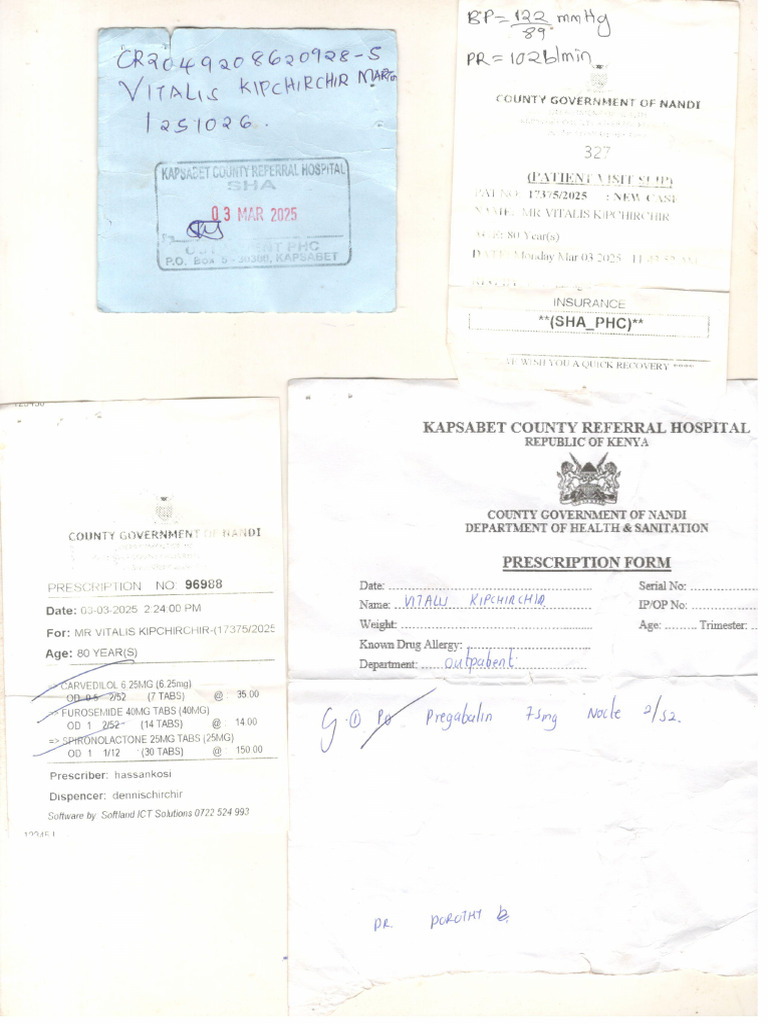 CR2049208620928-5
VITALIS KIPCHIRCHIR
1251026.
KAPSABET COUNTY REFERRAL HOSPITAL
SHA
03 MAR 2025
PHC
P.O. Box 5 - 30300, KAPSABET
BP = 122/89 mmHg
PR = 102b/min
COUNTY GOVERNMENT OF NANDI
327
(PATIENT VISIT SLIP)
PAT NO: 17375/2025 : NEW CASE
NAME: MR VITALIS KIPCHIRCHIR
AGE: 80 Year(s)
DATE: Monday Mar 03 2025
INSURANCE
**(SHA_PHC)**
WISH YOU A QUICK RECOVERY ****
COUNTY GOVERNMENT OF NANDI
PRESCRIPTION NO: 96988
Date: 03-03-2025 2:24:00 PM
For: MR VITALIS KIPCHIRCHIR-(17375/2025
Age: 80 YEAR(S)
=> CARVEDILOL 6.25MG (6.25mg)
OD 0.5 2/52 (7 TABS) @ : 35.00
=> FUROSEMIDE 40MG TABS (40MG)
OD 1 2/52 (14 TABS) @ : 14.00
=> SPIRONOLACTONE 25MG TABS (25MG)
OD 1 1/12 (30 TABS) @ : 150.00
Prescriber: hassankosi
Dispencer: dennischirchir
Software by: Softland ICT Solutions 0722 524 993
KAPSABET COUNTY REFERRAL HOSPITAL
REPUBLIC OF KENYA
COUNTY GOVERNMENT OF NANDI
DEPARTMENT OF HEALTH & SANITATION
PRESCRIPTION FORM
Date: Serial No:
Name: VITALIS KIPCHIRCHIR IP/OP No:
Weight: Age: Trimester:
Known Drug Allergy:
Department: Outpatient
① PO Pregabalin 75mg Nocte 2/52.
DR. DOROTHY B.